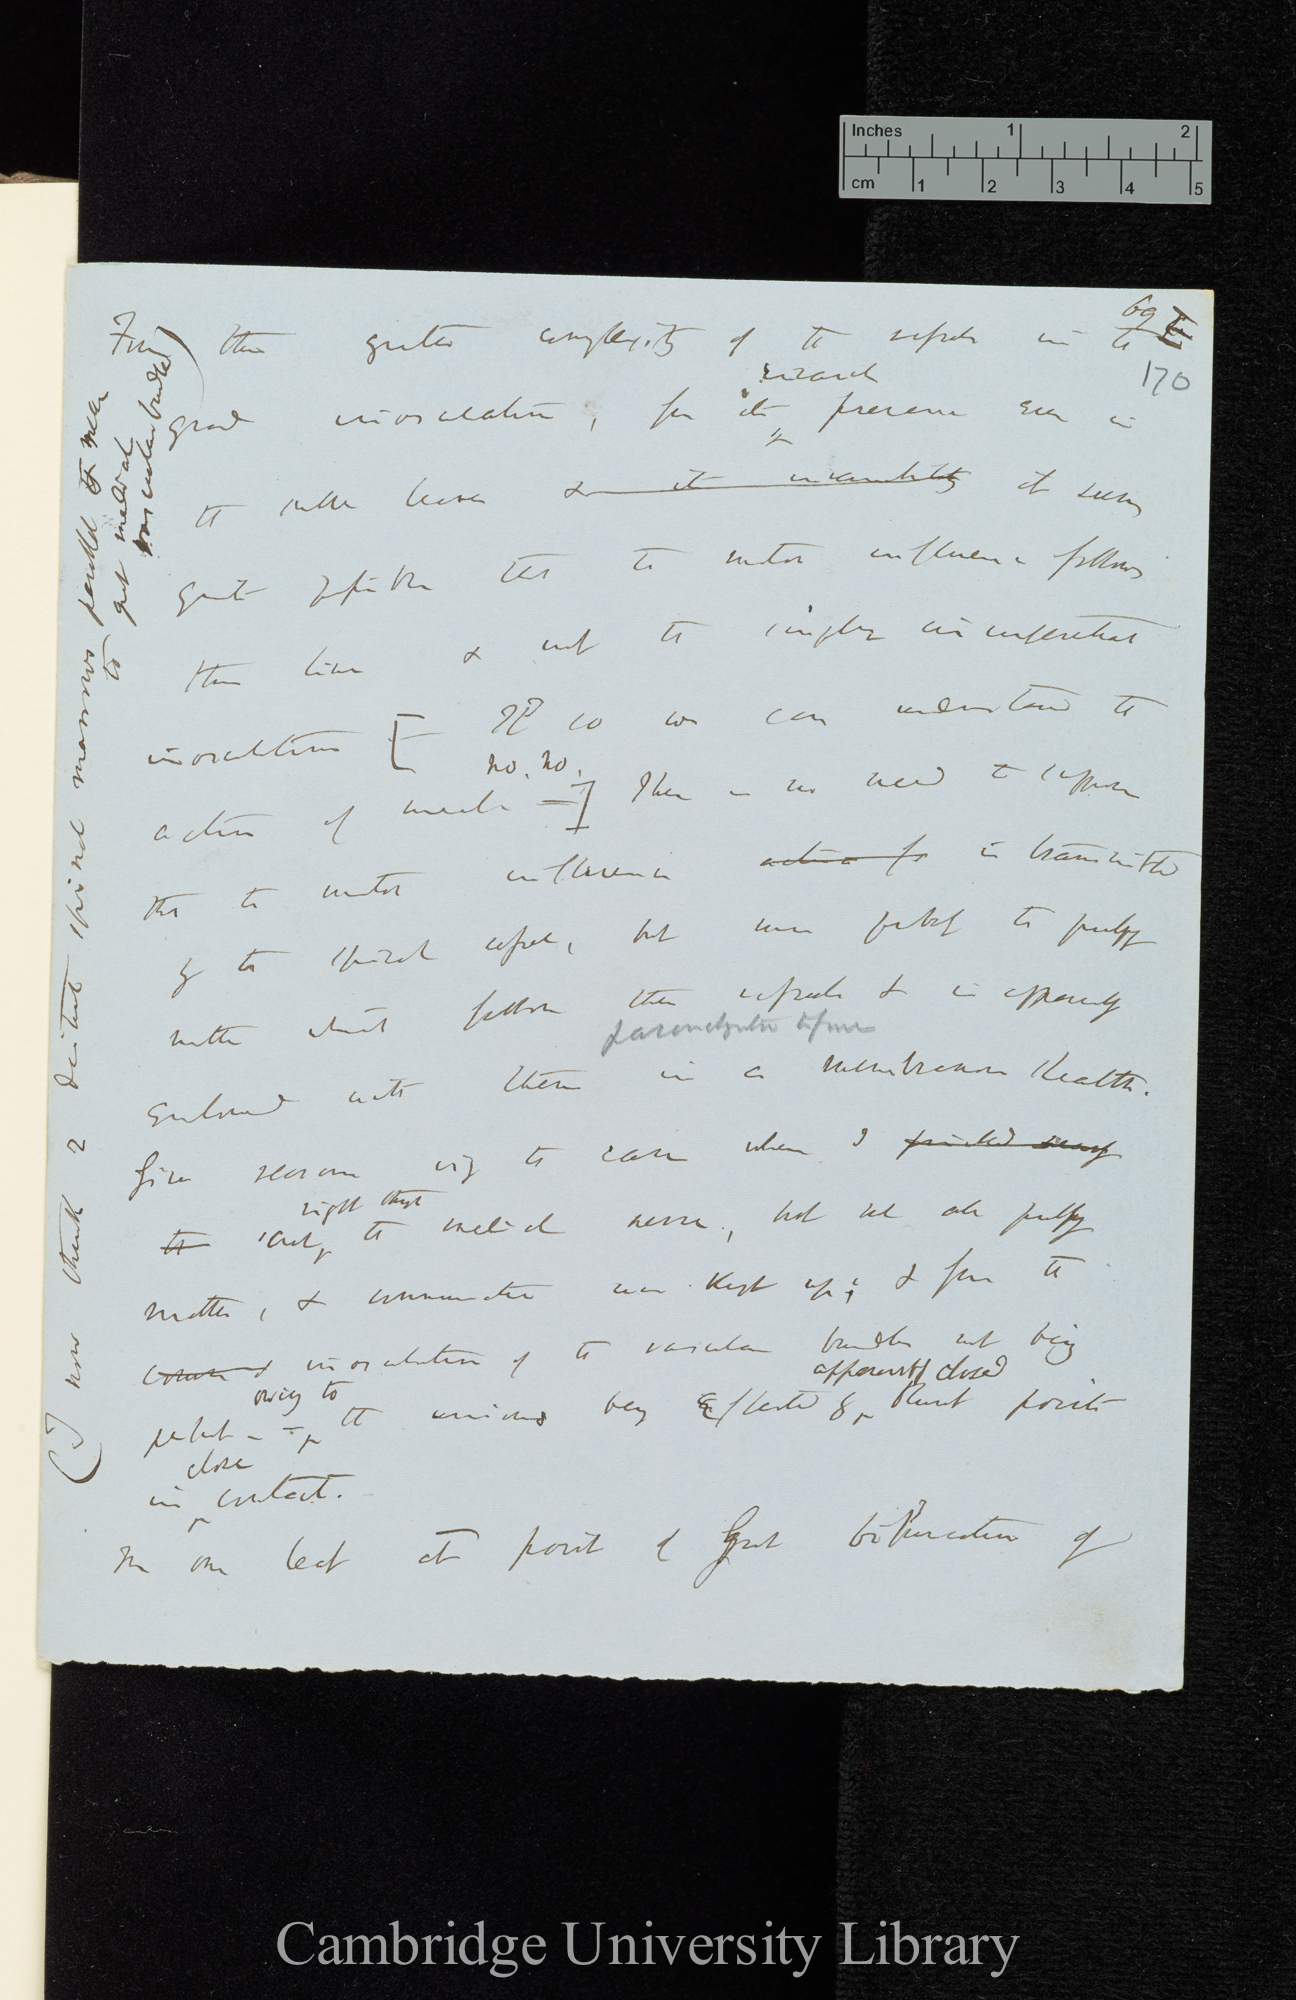 69
170
From the greater complexity of the vessels in the
research
great inosculation, for its presence even in
the smaller leaves & it invariability it seems
quite possible that the motor influence follows
these lines & not the simpler
inosculations [— If so we can understand the
no. no.
action of —] There is no need to suppose
that the motor influence action is transmitted
by the spiral vessels, but more probably the pulpy
matter which follows these vessels & is apparently
parenchymatous tissue
enclosed with them in a membranous sheath.
Give reasons viz the case when I pricked
right through
the the medial nerve, but not all pulpy
matter, & communication was kept up; & from the
inosculation of the vascular bundles not being
apparently closed
owing to
perfect — the unions being effected by blunt points
close
in contact.
In one leaf at point of great bifurcation of
(I now think 2 distinct spiral
parallel & near
to great medial
vascular bundle)
Inches 1 2
cm 1 2 3 4 5
Cambridge University Library